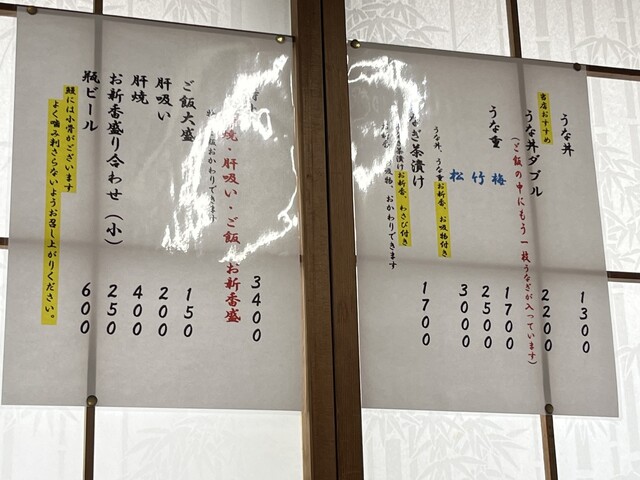 うな丼 1300
当店おすすめ
うな丼ダブル 2200
(ご飯の中にもう一枚うなぎが入っています)
うな重 梅 1700
竹 2500
松 3000
うな丼、うな重お新香、お吸物付き
なぎ茶漬け 1700
茶漬けお新香、わさび付き
おかわりできます
3400
焼・肝吸い・ご飯・お新香盛
おかわりできます
ご飯大盛 150
肝吸い 200
肝焼 400
お新香盛り合わせ(小) 250
瓶ビール 600
鰻には小骨がございます
よく噛み刺さらないようお召し上がりください。